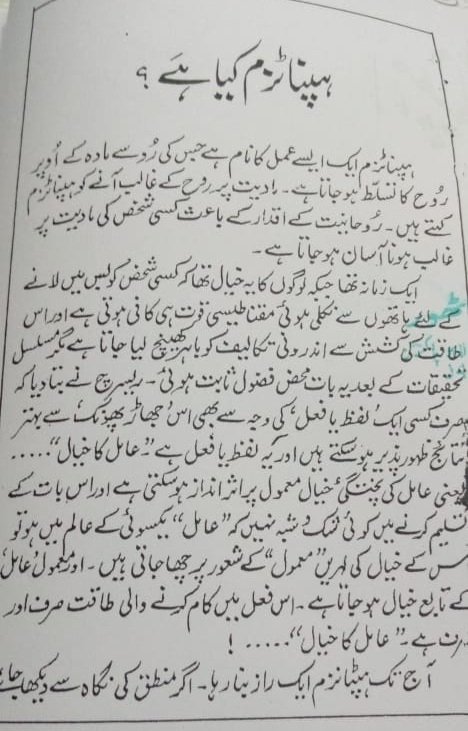 ہپناٹزم کیا ہے ؟
ہپناٹزم ایک ایسے عمل کا نام ہے جس کی رُو سے مادہ کے اُوپر
رُوح کا تسلّط ہو جاتا ہے ۔ مادیت پر روح کے غالب آنے کو ہپناٹزم
کہتے ہیں ۔ رُوحانیت کے اقدار کے باعث کسی شخص کی مادیت پر
غالب ہونا آسان ہو جاتا ہے ۔
ایک زمانہ تھا جبکہ لوگوں کا یہ خیال تھا کہ کسی شخص کو بس میں لانے
کے لئے ہاتھوں سے نکلی ہوئی مقناطیسی قوت ہی کافی ہوتی ہے اور اس
طاقت کی کشش سے اندرونی تکالیف کو باہر کھینچ لیا جاتا ہے مگر مسلسل
تحقیقات کے بعد یہ بات محض فضول ثابت ہوئی ۔ ریسرچ نے بتا دیا کہ
صرف کسی ایک لفظ یا فعل، کی وجہ سے بھی اس جھاڑ پھونک، سے بہتر
نتائج ظہور پذیر ہو سکتے ہیں اور یہ لفظ یا فعل ہے ”عامل کا خیال“ .....
یعنی عامل کی پختگئ خیال معمول پر اثر انداز ہو سکتی ہے اور اس بات کے
تسلیم کرنے میں کوئی شک و شبہ نہیں کہ ”عامل“ یکسوئی کے عالم میں ہو تو
اس کے خیال کی لہریں ”معمول“ کے شعور پر چھا جاتی ہیں ۔ اور معمول عامل
کے تابع خیال ہو جاتا ہے ۔ اس فعل میں کام کرنے والی طاقت صرف اور
صرف ہے ۔ ”عامل کا خیال“ ..... !
آج تک ہپناٹزم ایک راز بنا رہا ۔ اگر منطق کی نگاہ سے دیکھا جائے